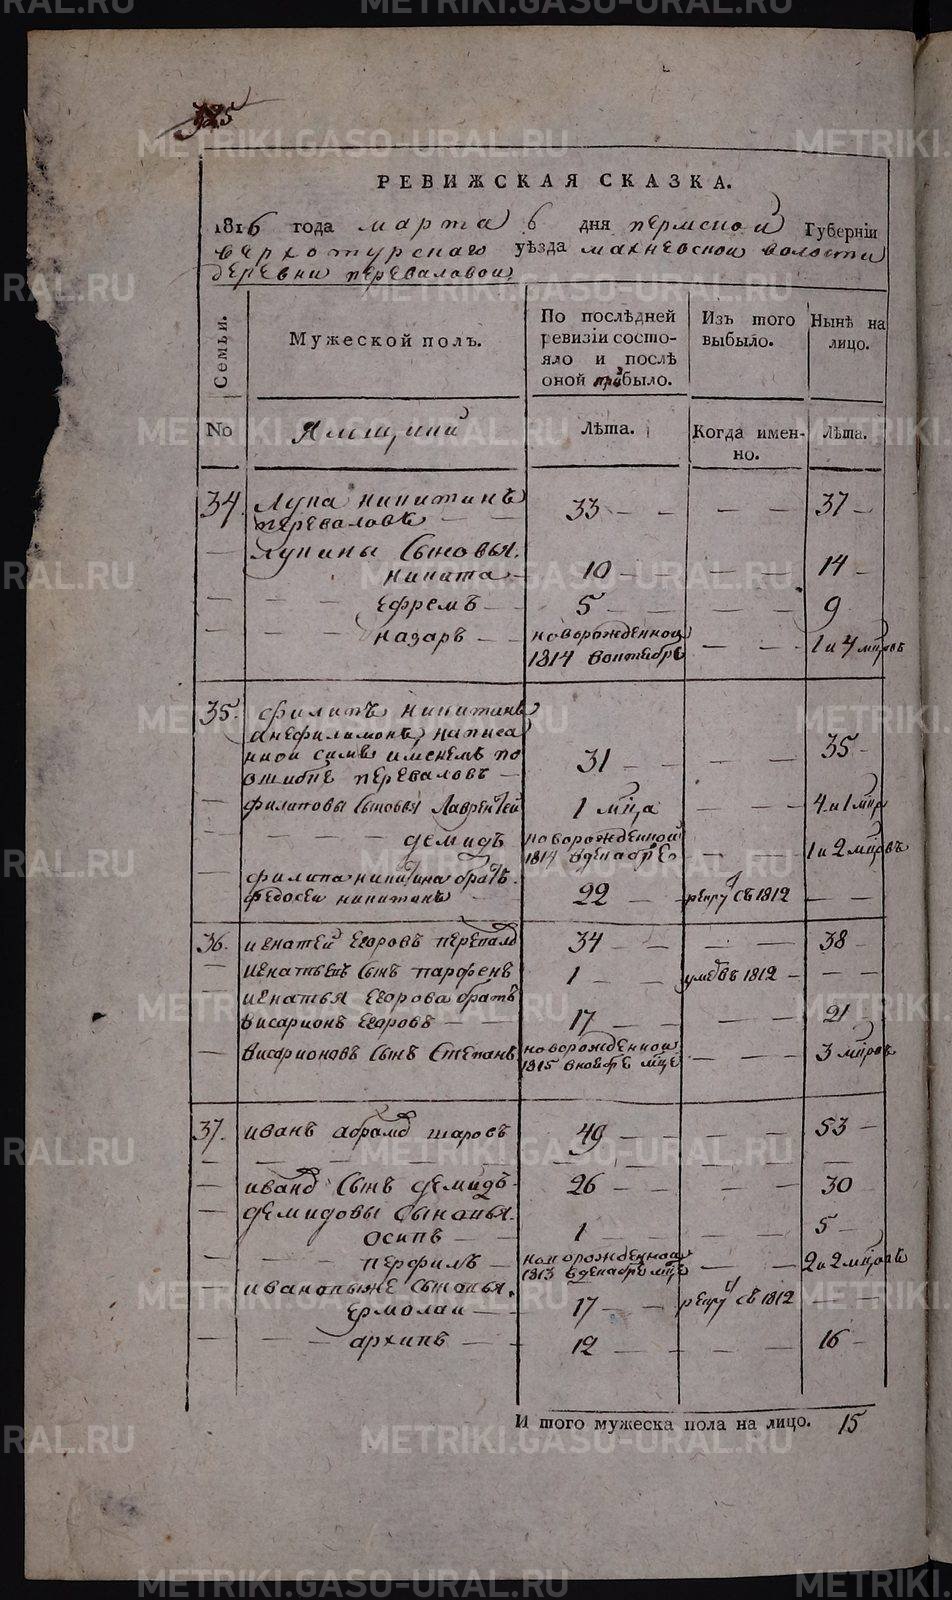 325
РЕВИЖСКАЯ СКАЗКА.
1816 года марта 6 дня пермской Губерніи
верхотурскаго уѣзда махневской волости
деревни переваловой
Семьи. Мужеской полъ. По послѣдней ревизіи состояло и послѣ оной прибыло. Изъ того выбыло. Нынѣ на лицо.
No Ямщики Лѣта. Когда именно. Лѣта.
34. Лупа никитинъ переваловъ — — 33 — — — — 37 —
— Лупины Сыновья.
никита — 10 — — — — 14 —
— — — ефремъ — 5 — — — — 9
— — — назаръ — — новорожденной 1814 воктебрѣ — — 1 и 4 мцовъ
35. филипъ никитинъ
анефилимонъ написа
нной симъ именемъ по
ошибке переваловъ — 31 — — — — 35 —
— филиповы сыновья Лаврентей 1 мца — — 4 и 1 мцъ
— — — демидъ новорожденной 1814 вденабрѣ — — 1 и 2 мцовъ
— филипа никитина братъ
федосеи никитинъ — 22 — — рекру съ 1812 — —
36. игнатей Егоровъ перевалъ 34 — — — — 38 —
— игнатьевъ сынъ парфенъ 1 — — умевъ 1812 — — —
— игнатья Егорова братъ
висарионъ Егоровъ — — 17 — — 21
— висарионовъ сынъ Степанъ новорожденной 1815 вноебре мце — — 3 мцовъ
37. иванъ абрамъ шаровъ 49 — — — — 53 —
— иванъ сынъ демидъ 26 — — — — 30
— демидовы сыновья.
осипъ — 1 — — — — 5 —
— — перфилъ — новорожденной 1813 вденабре мце — — 2 и 2 мцовъ
— ивановыже сыновья.
ермолаи — — 17 — — рекру съ 1812 — —
— — — архипъ — 12 — — — — 16 —
И того мужеска пола на лицо. 15
METRIKI.GASO-URAL.RU